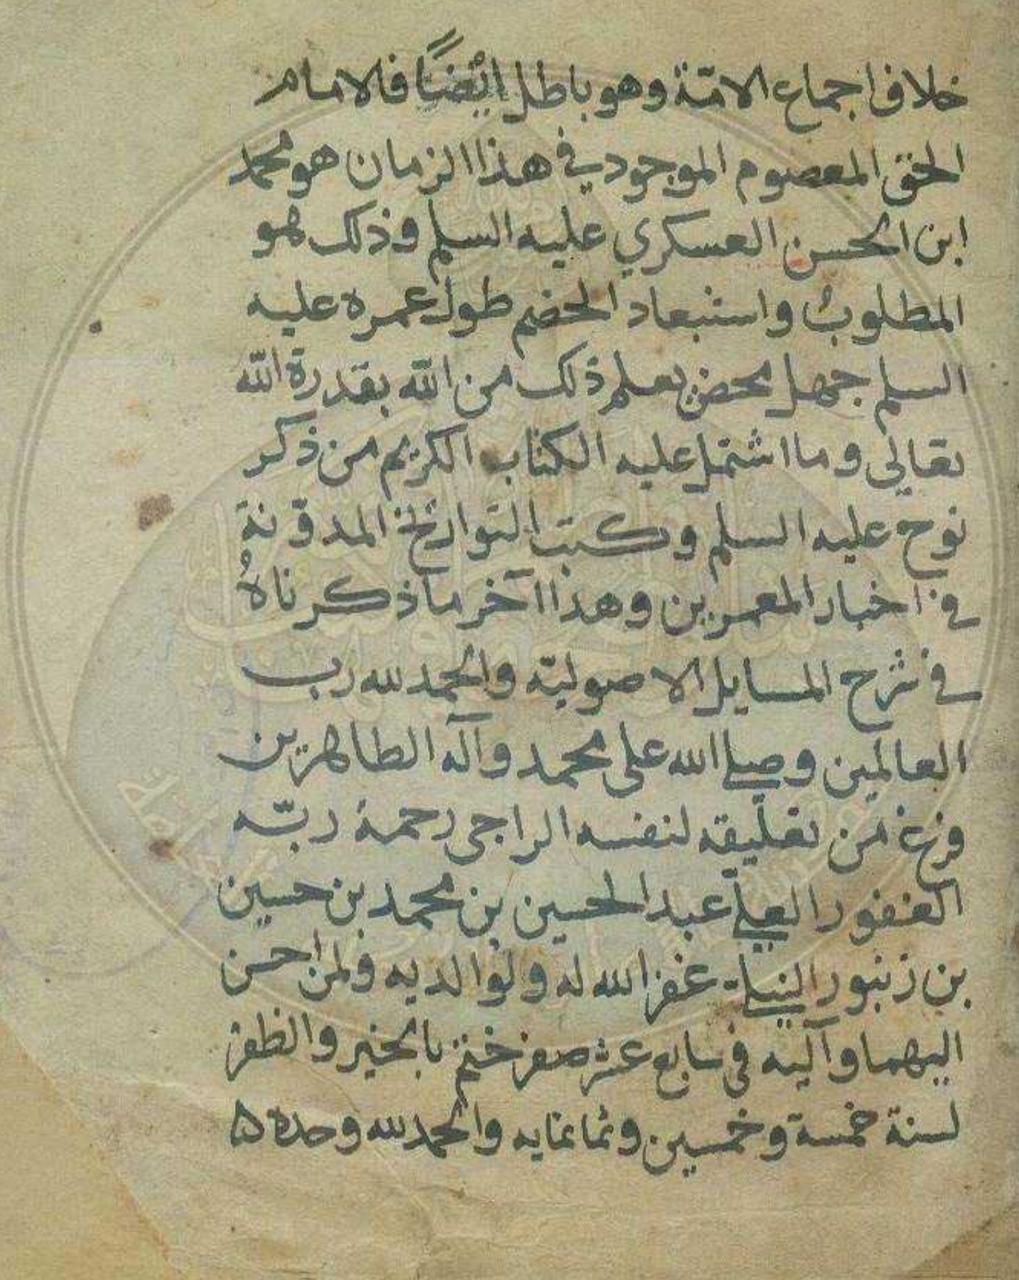 خلاف اجماع الامّة وهو باطل ايضًا فالامام
الحق المعصوم الموجود في هذا الزمان هو محمد
ابن الحسن العسكري عليه السلم وذلك هو
المطلوب واستبعاد الخصم طول عمره عليه
السلم جهل محض يعلم ذلك من الله بقدرة الله
تعالى وما اشتمل عليه الكتاب الكريم من ذكر
نوح عليه السلم وكتب التواريخ المدونة
في اخبار المعمرين وهذا آخر ما ذكرناهُ
في شرح المسايل الاصوليّه والحمد لله رب
العالمين وصلى الله على محمد وآله الطاهرين
فرغ من تعليقه لنفسه الراجي رحمة ربّه
الغفور العلي عبد الحسين بن محمد بن حسين
بن زنبور النيلي غفر الله له ولوالديه ولمن احسن
اليهما وآليه في سابع عشر صفر ختم بالخير والظفر
لسنة خمسة وخمسين وثمانمايه والحمد لله وحده